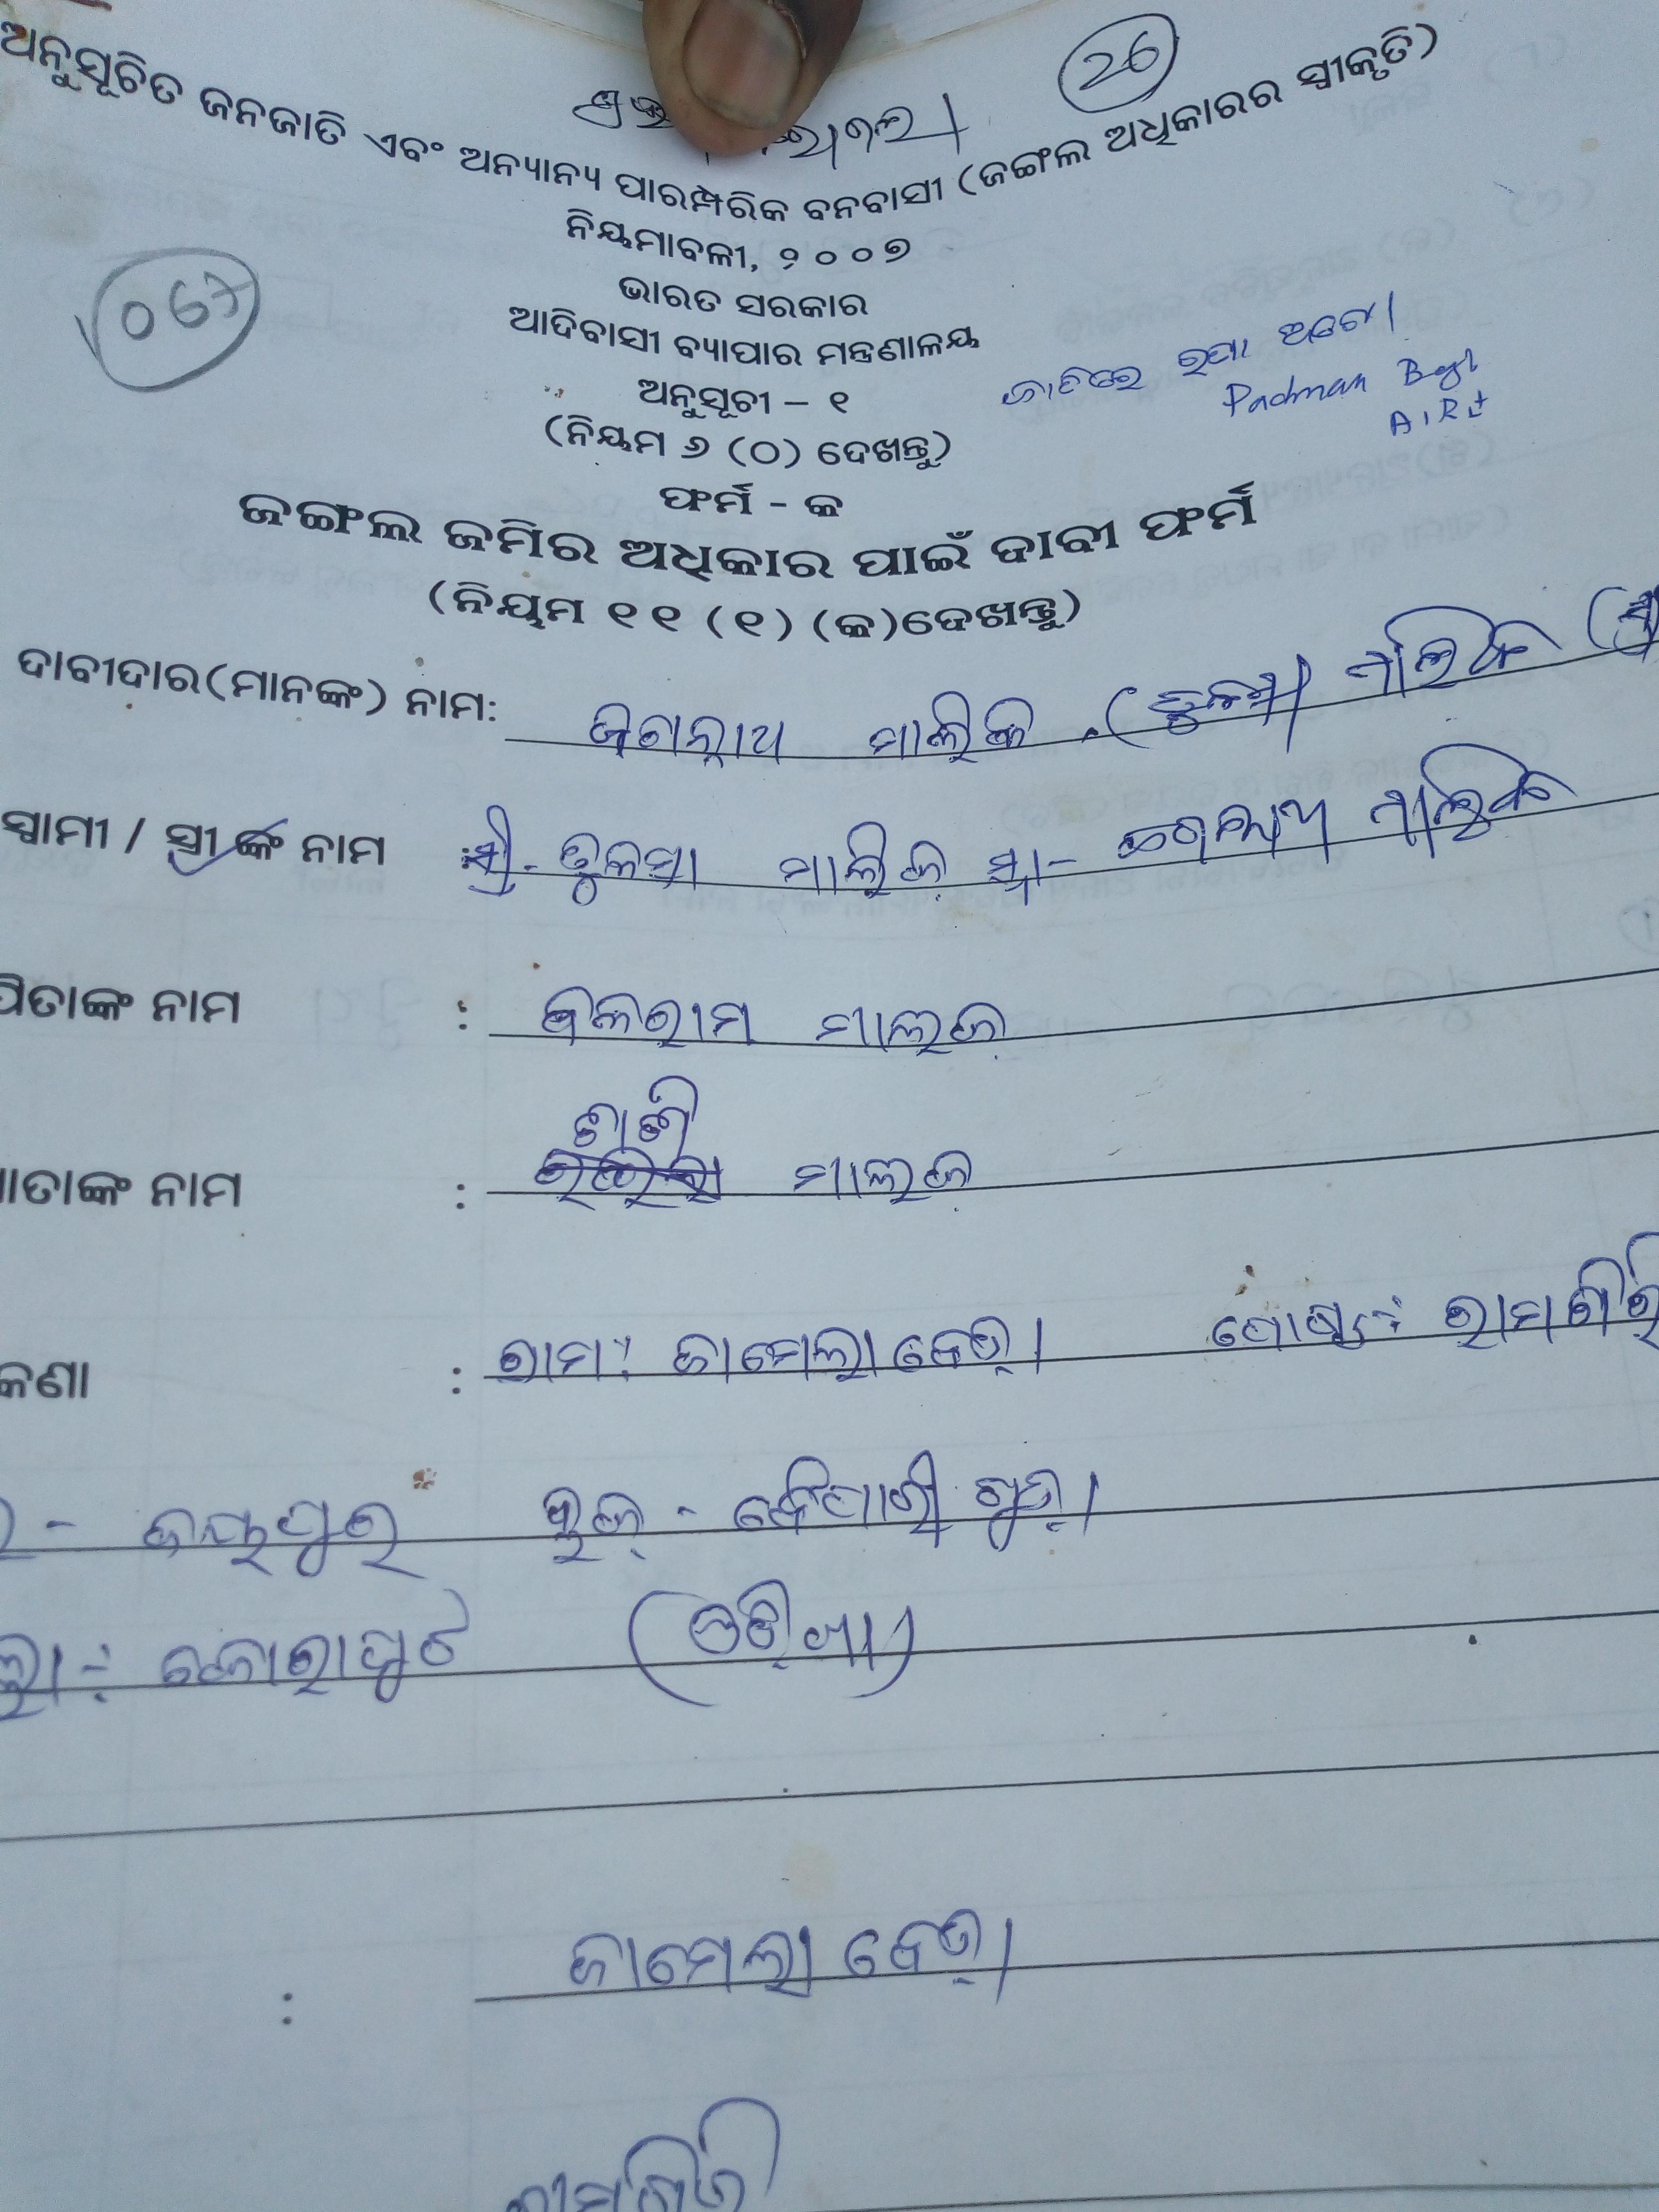 26
ଅନୁସୂଚିତ ଜନଜାତି ଏବଂ ଅନ୍ୟାନ୍ୟ ପାରମ୍ପରିକ ବନବାସୀ (ଜଙ୍ଗଲ ଅଧିକାରର ସ୍ୱୀକୃତି)
ନିୟମାବଳୀ, ୨୦୦୭
067
ଭାରତ ସରକାର
ଆଦିବାସୀ ବ୍ୟାପାର ମନ୍ତ୍ରଣାଳୟ
ଅନୁସୂଚୀ – ୧
Padman
(ନିୟମ ୬ (୦) ଦେଖନ୍ତୁ)
ଫର୍ମ - କ
ଜଙ୍ଗଲ ଜମିର ଅଧିକାର ପାଇଁ ଦାବୀ ଫର୍ମ
(ନିୟମ ୧୧ (୧) (କ)ଦେଖନ୍ତୁ)
ଦାବୀଦାର(ମାନଙ୍କ) ନାମ: ଜଗନ୍ନାଥ ମାଲିକ (ତୁଳସା ମାଲିକ
ସ୍ୱାମୀ / ସ୍ତ୍ରୀ ଙ୍କ ନାମ ସ୍ତ୍ରୀ- ତୁଳସା ମାଲିକ ସ୍ୱା- ଜଗନ୍ନାଥ ମାଲିକ
ପିତାଙ୍କ ନାମ : ବଳରାମ ମାଲିକ
ମାତାଙ୍କ ନାମ : ମାଲିକ
କଣା : ଗ୍ରାମ: ଜାମେଲା ବେଡ଼ା ପୋଷ୍ଟ: ରାମଗିରି
- ଜୟପୁର ବ୍ଲକ - ବୈପାରୀଗୁଡ଼ା
କୋରାପୁଟ (ଓଡ଼ିଶା)
: ଜାମେଲା ବେଡ଼ା
ରାମଗିରି